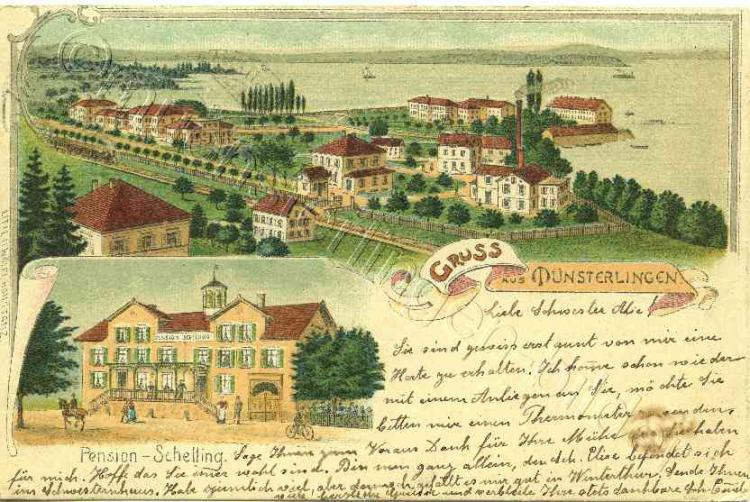 GRUSS
AUS MÜNSTERLINGEN
PENSION SCHELLING
Pension - Schelling.
Liebe Schwester
Sie sind gewiss erstaunt von mir eine
Karte zu erhalten. Ich komme schon wieder
mit einem Anliegen an Sie, möchte Sie
bitten mir einen Thermometer zu senden
Sage Ihnen zum Voraus Dank für Ihre Mühe. Sie haben
für mich. Hoffe das Sie immer wohl sind. Bin nun ganz allein, den Sch. Elise befindet sich
im Schwesternhaus, Habe ziemlich viel, aber dennoch gefällt es mir gut in Winterthur. Sende Ihnen
viele herzliche Grüsse und verbleibe Ihre stets dankbare Sch.